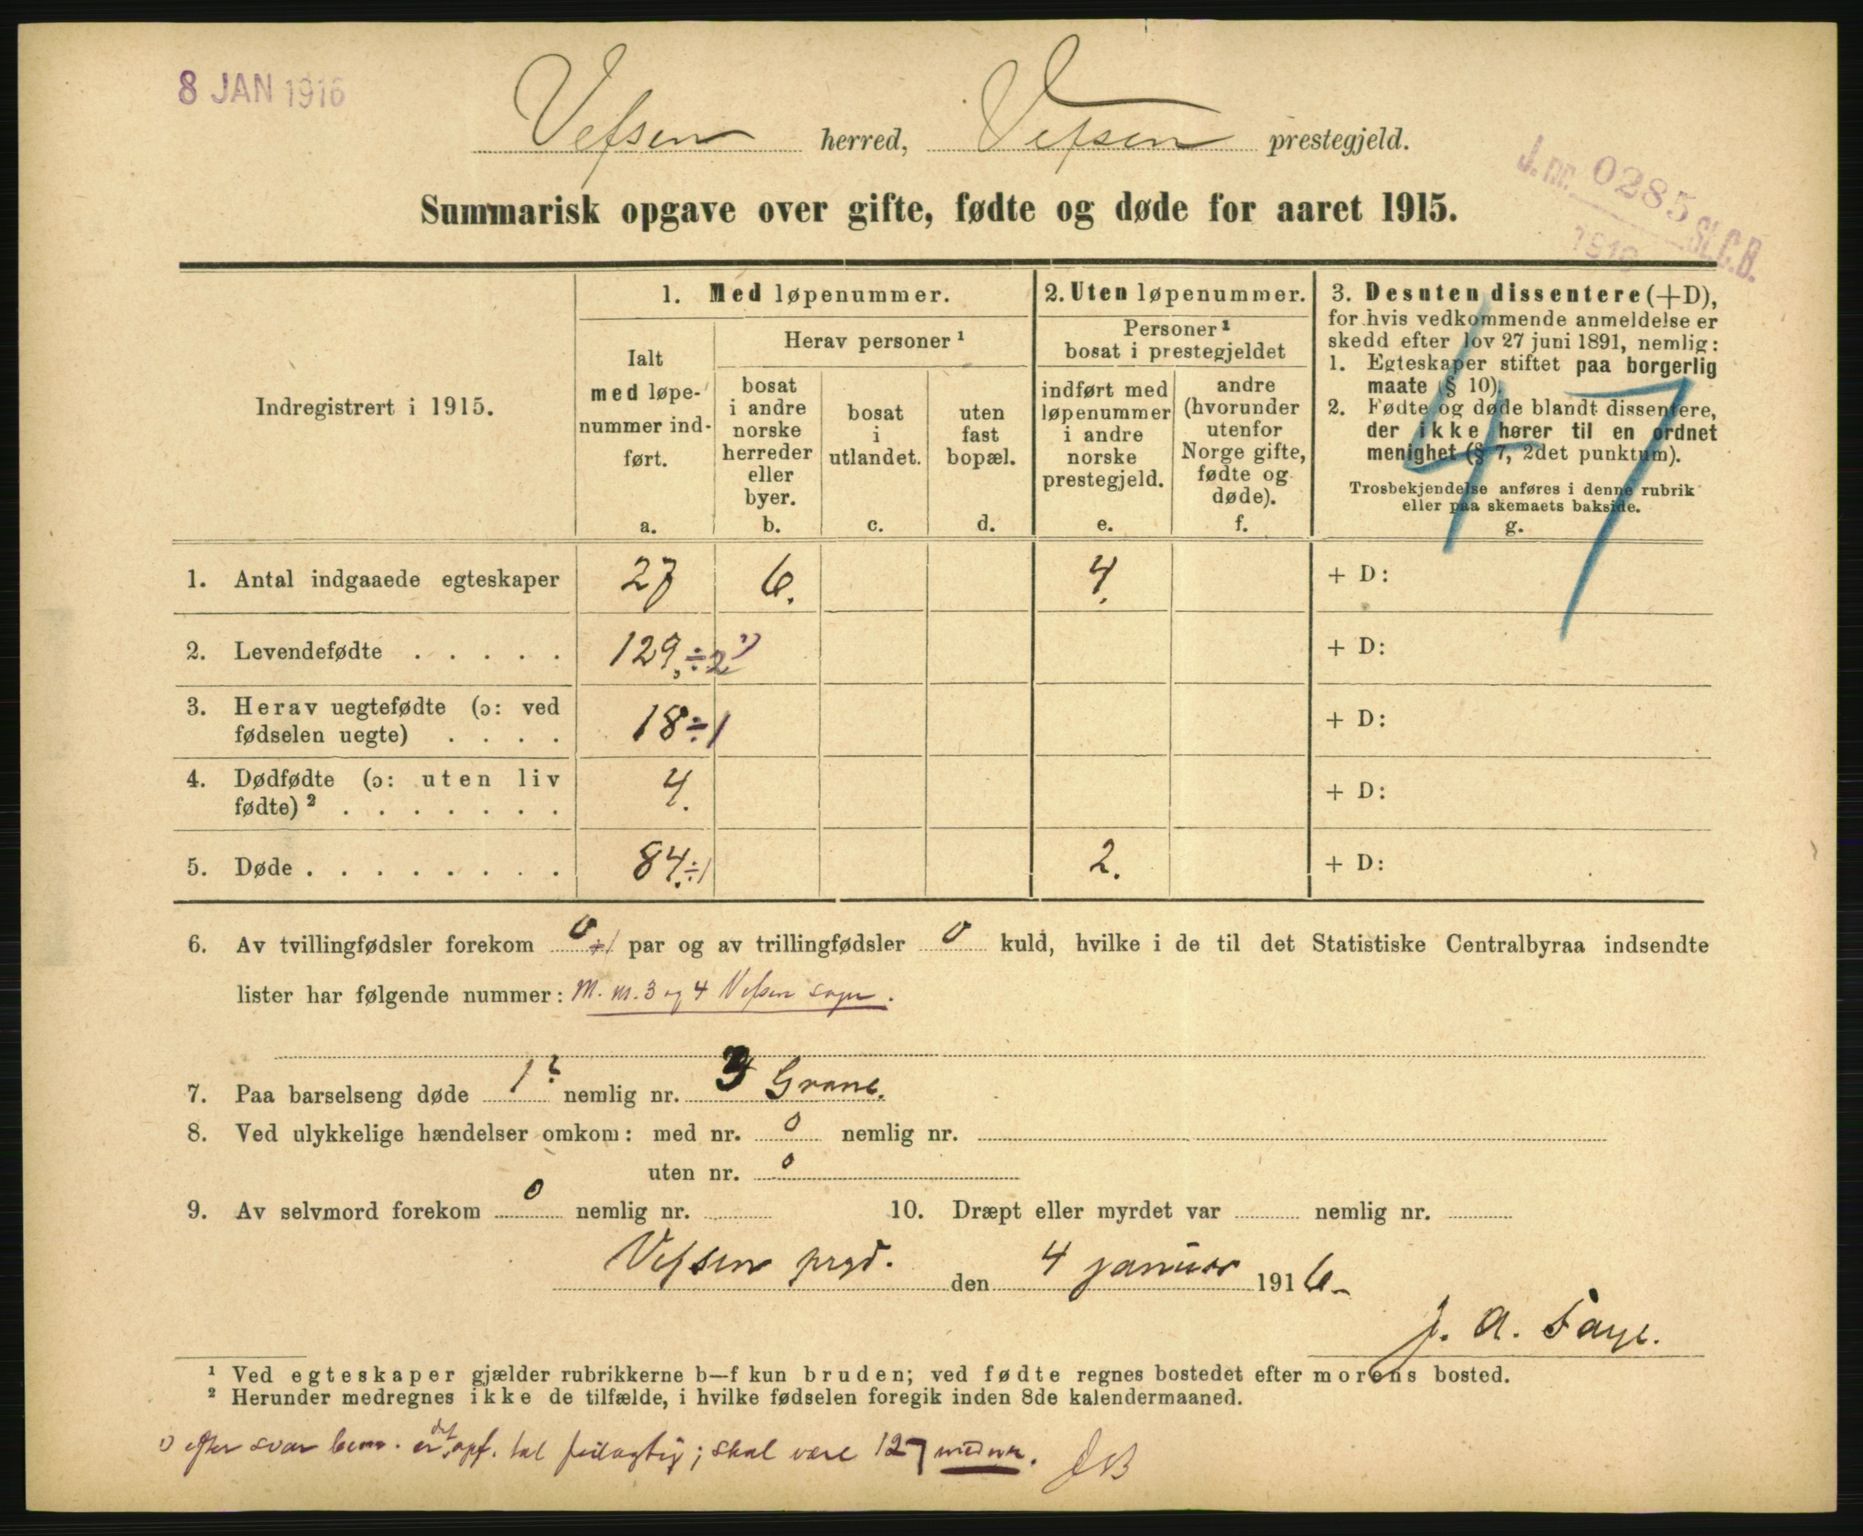 8 JAN 1916
Vefsen herred, Vefsen prestegjeld.
J. nr. 0285 St. C. B.
1916
Summarisk opgave over gifte, fødte og døde for aaret 1915.
Indregistrert i 1915.
1. Med løpenummer.
Ialt med løpe-
nummer ind-
ført.
a.
Herav personer ¹
bosat
i andre
norske
herreder
eller
byer.
b.
bosat
i
utlandet.
c.
uten
fast
bopæl.
d.
2. Uten løpenummer.
Personer ¹
bosat i prestegjeldet
indført med
løpenummer
i andre
norske
prestegjeld.
e.
andre
(hvorunder
utenfor
Norge gifte,
fødte og
døde).
f.
3. Desuten dissentere (+D),
for hvis vedkommende anmeldelse er
skedd efter lov 27 juni 1891, nemlig:
1. Egteskaper stiftet paa borgerlig
maate (§ 10).
2. Fødte og døde blandt dissentere,
der ikke hører til en ordnet
menighet (§ 7, 2det punktum).
Trosbekjendelse anføres i denne rubrik
eller paa skemaets bakside.
g.
47
1. Antal indgaaede egteskaper 27 6. 4. + D:
2. Levendefødte . . . . . 129. ÷2 ¹) + D:
3. Herav uegtefødte (ɔ: ved
fødselen uegte) . . . . 18 ÷1 + D:
4. Dødfødte (ɔ: uten liv
fødte) ² . . . . . . . 4. + D:
5. Døde . . . . . . . . 84. ÷1 2. + D:
6. Av tvillingfødsler forekom 0 +1 par og av trillingfødsler 0 kuld, hvilke i de til det Statistiske Centralbyraa indsendte
lister har følgende nummer: M. nr. 3 og 4 Vefsen sogn.
7. Paa barselseng døde 1 ? nemlig nr. 3 Grane.
8. Ved ulykkelige hændelser omkom: med nr. 0 nemlig nr.
uten nr. 0
9. Av selvmord forekom 0 nemlig nr.
10. Dræpt eller myrdet var nemlig nr.
Vefsen prgd. den 4 januar 1916.
J. A. Faye.
¹ Ved egteskaper gjælder rubrikkerne b—f kun bruden; ved fødte regnes bostedet efter morens bosted.
² Herunder medregnes ikke de tilfælde, i hvilke fødselen foregik inden 8de kalendermaaned.
¹) efter svar bem. er det opf. tal feilagtig; skal være 127 med nr.